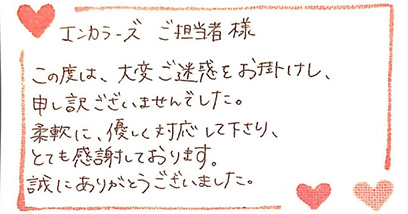 エンカラーズ ご担当者 様
この度は、大変ご迷惑をお掛けし、
申し訳ございませんでした。
柔軟に、優しく対応して下さり、
とても感謝しております。
誠にありがとうございました。